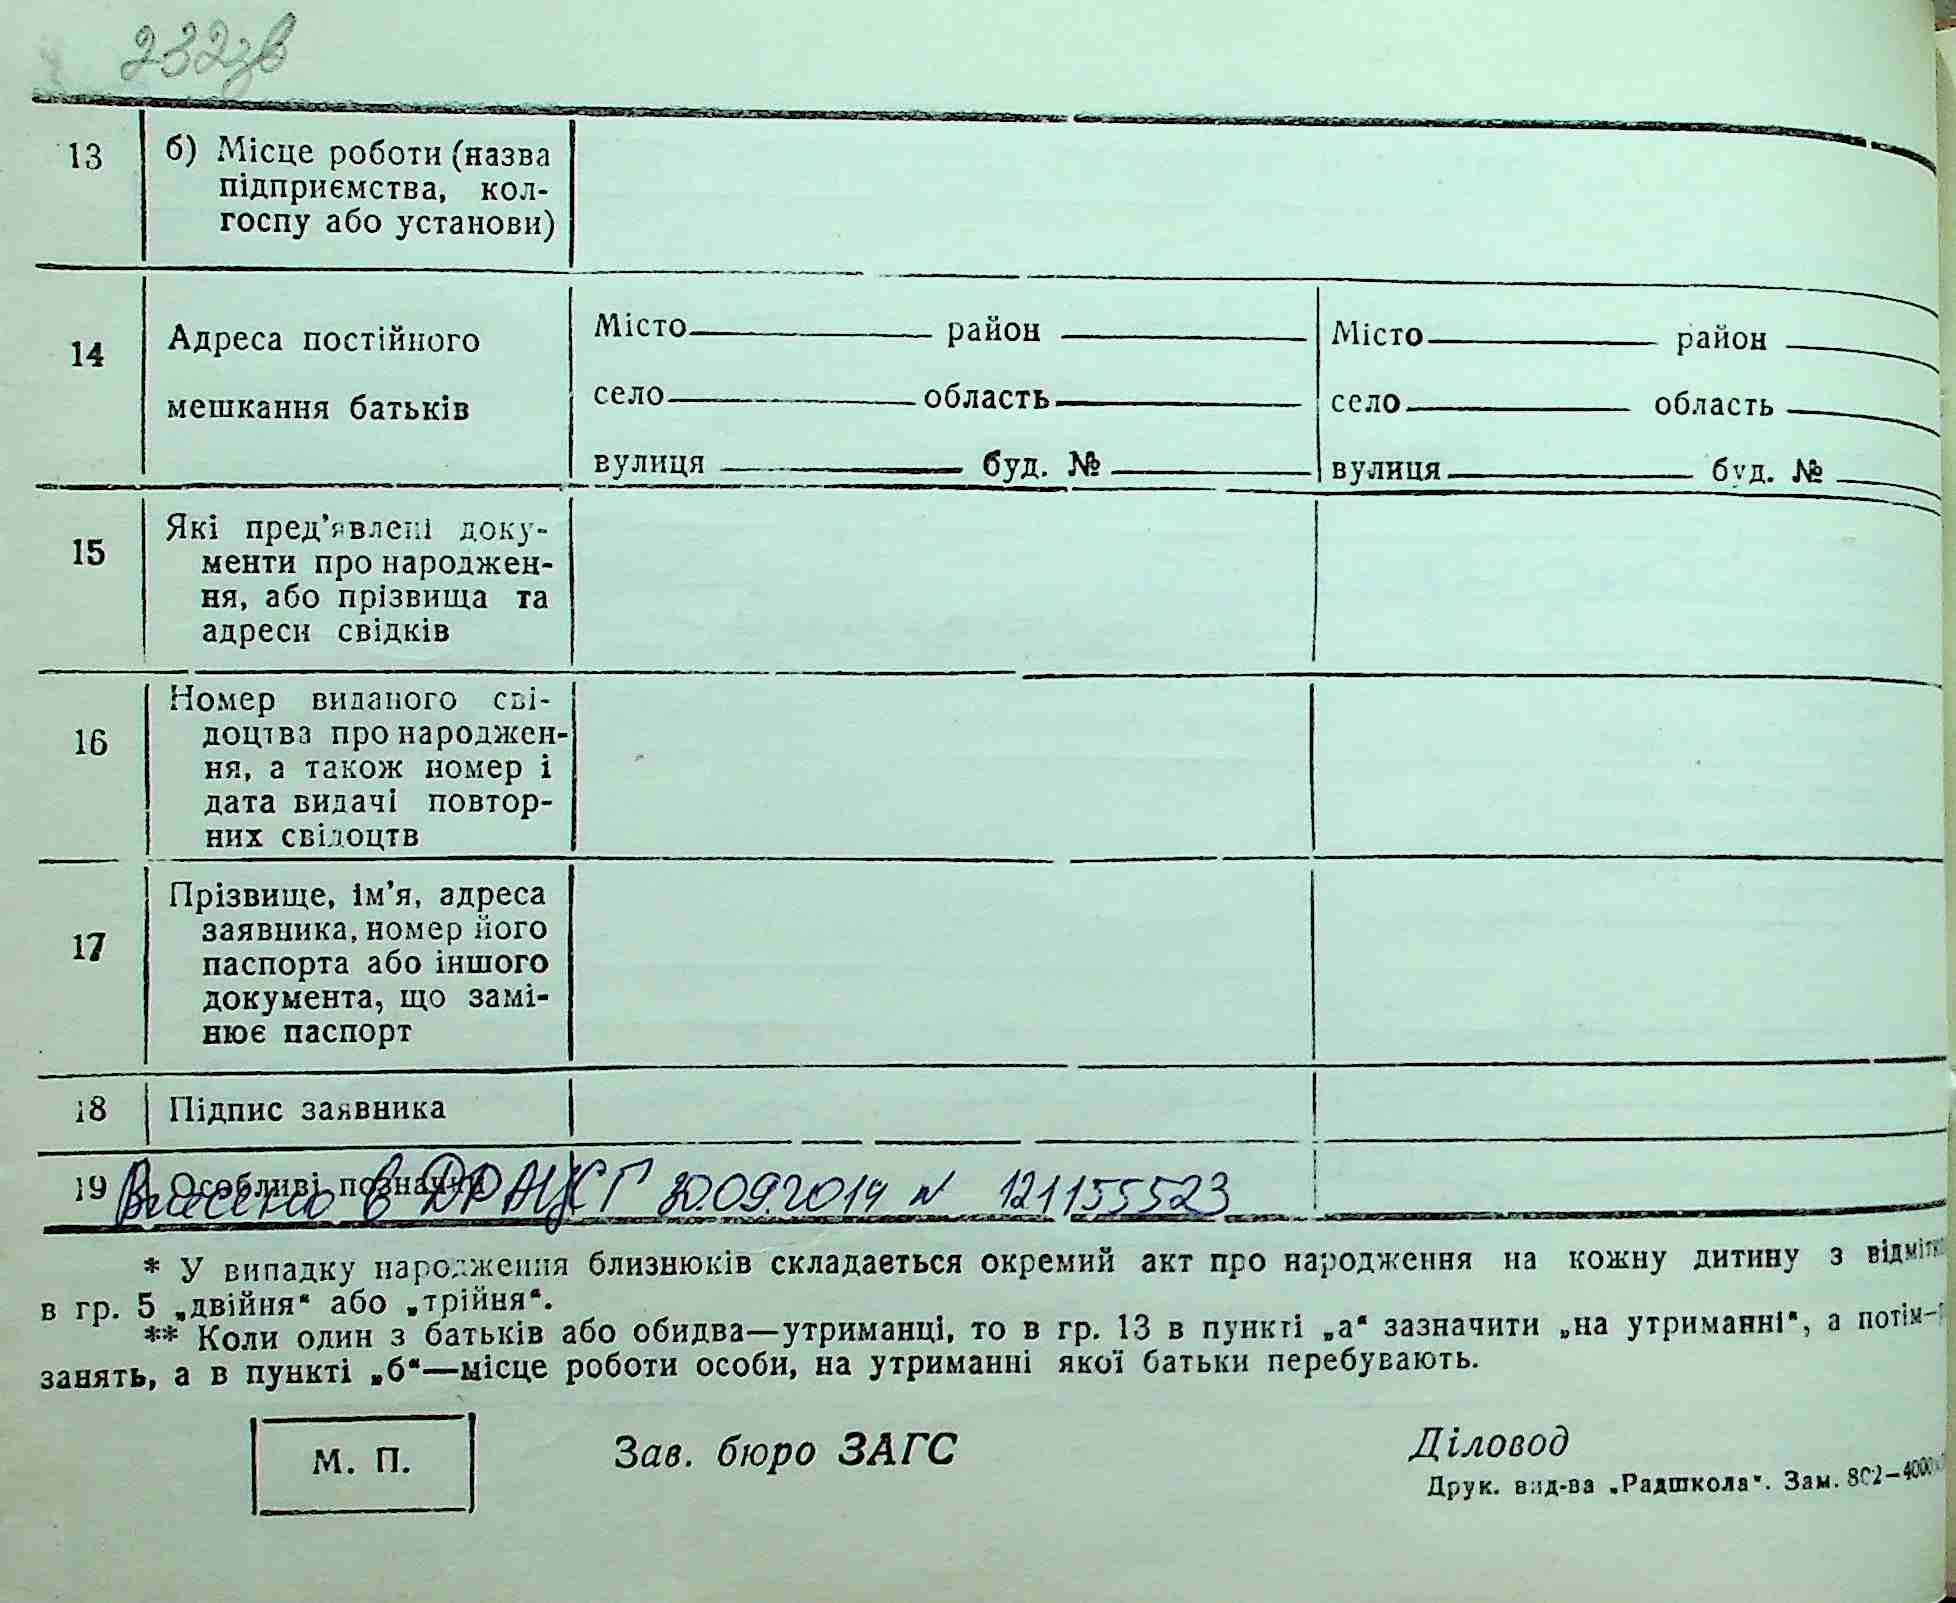 232зв
13 б) Місце роботи (назва
підприємства, кол-
госпу або установи)
14 Адреса постійного
мешкання батьків
Місто район
село область
вулиця буд. №
Місто район
село область
вулиця буд. №
15 Які пред’явлені доку-
менти про народжен-
ня, або прізвища та
адреси свідків
16 Номер виданого сві-
доцтва про народжен-
ня, а також номер і
дата видачі повтор-
них свідоцтв
17 Прізвище, ім’я, адреса
заявника, номер його
паспорта або іншого
документа, що замі-
нює паспорт
18 Підпис заявника
19 Особливі позначки
Внесено в ДРАЦСГ 30.09.2014 N 121155523
* У випадку народження близнюків складається окремий акт про народження на кожну дитину з
в гр. 5 „двійня“ або „трійня“.
** Коли один з батьків або обидва—утриманці, то в гр. 13 в пункті „а“ зазначити „на утриманні“, а потім—
занять, а в пункті „б“—місце роботи особи, на утриманні якої батьки перебувають.
М. П.
Зав. бюро ЗАГС
Діловод
Друк. вид-ва „Радшкола“. Зам. 802—4000